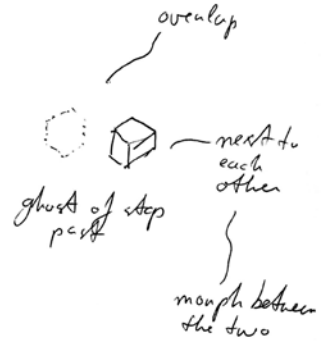 overlap
next to
each
other
ghost of step
past
morph between
the two